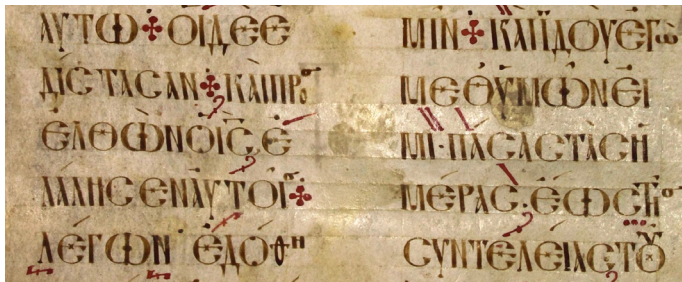 ΑΥΤΩ ✣ ΟΙΔΕΕ
ΔΙϹΤΑϹΑΝ ✣ ΚΑΙΠΡΟϹ
ΕΛΘΩΝΟΙϹ̅Ε
ΛΑΛΗϹΕΝΑΥΤΟΙϹ ✣
ΛΕΓΩΝ ΕΔΟΘΗ
ΜΙΝ ✣ ΚΑΙΪΔΟΥΕΓΩ
ΜΕΘΥΜΩΝΕΙ
ΜΙ·ΠΑϹΑϹΤΑϹΗ
ΜΕΡΑϹ·ΕΩϹΤΗϹ
ϹΥΝΤΕΛΕΙΑϹΤΟΥ